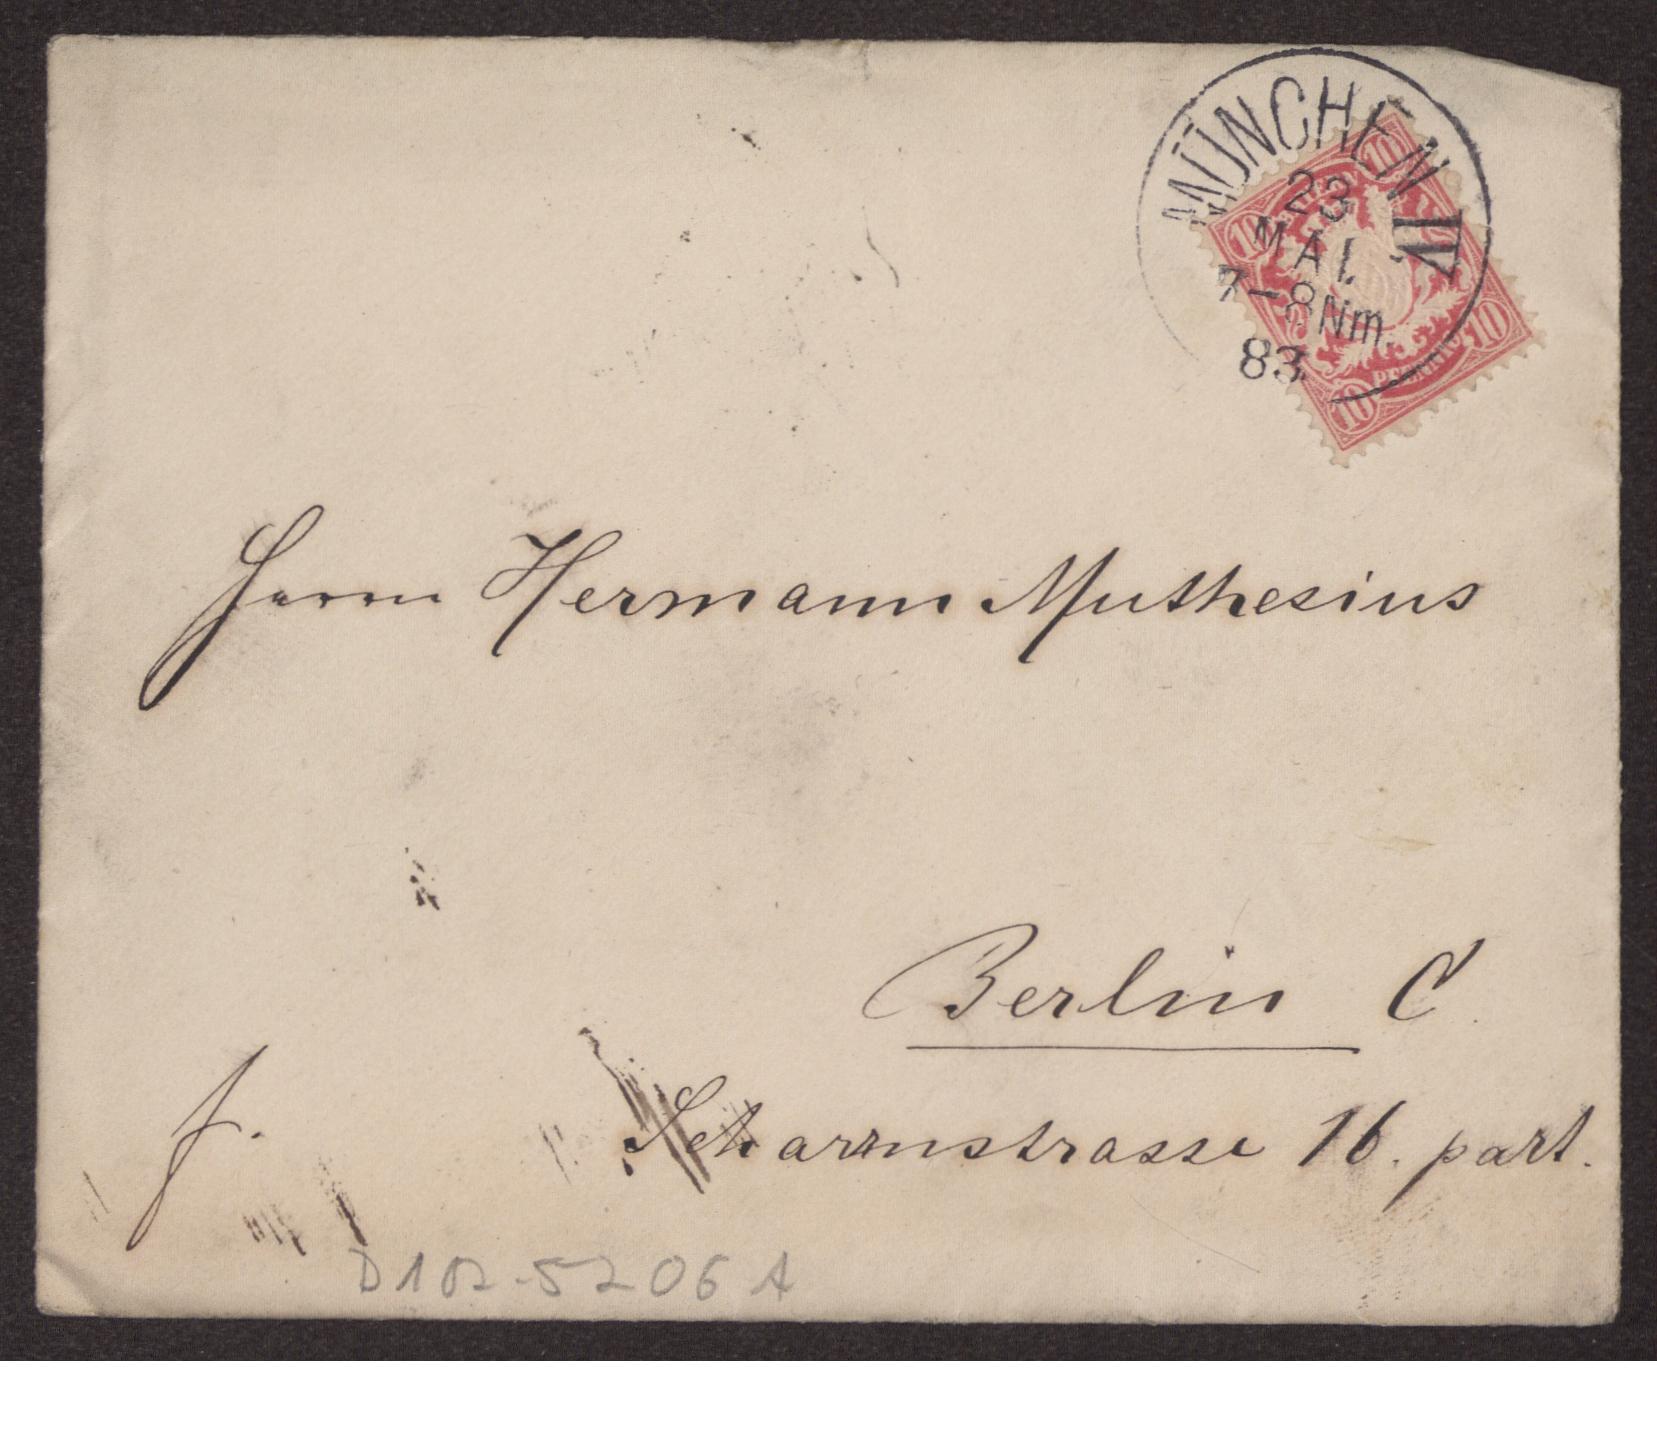 MÜNCHEN III.
23
MAI.
7-8Nm.
83
10
10
10
10
PFENNIG
Herrn Hermann Muthesius
Berlin C
fr.
Scharrnstrasse 16. part.
D102-5206A